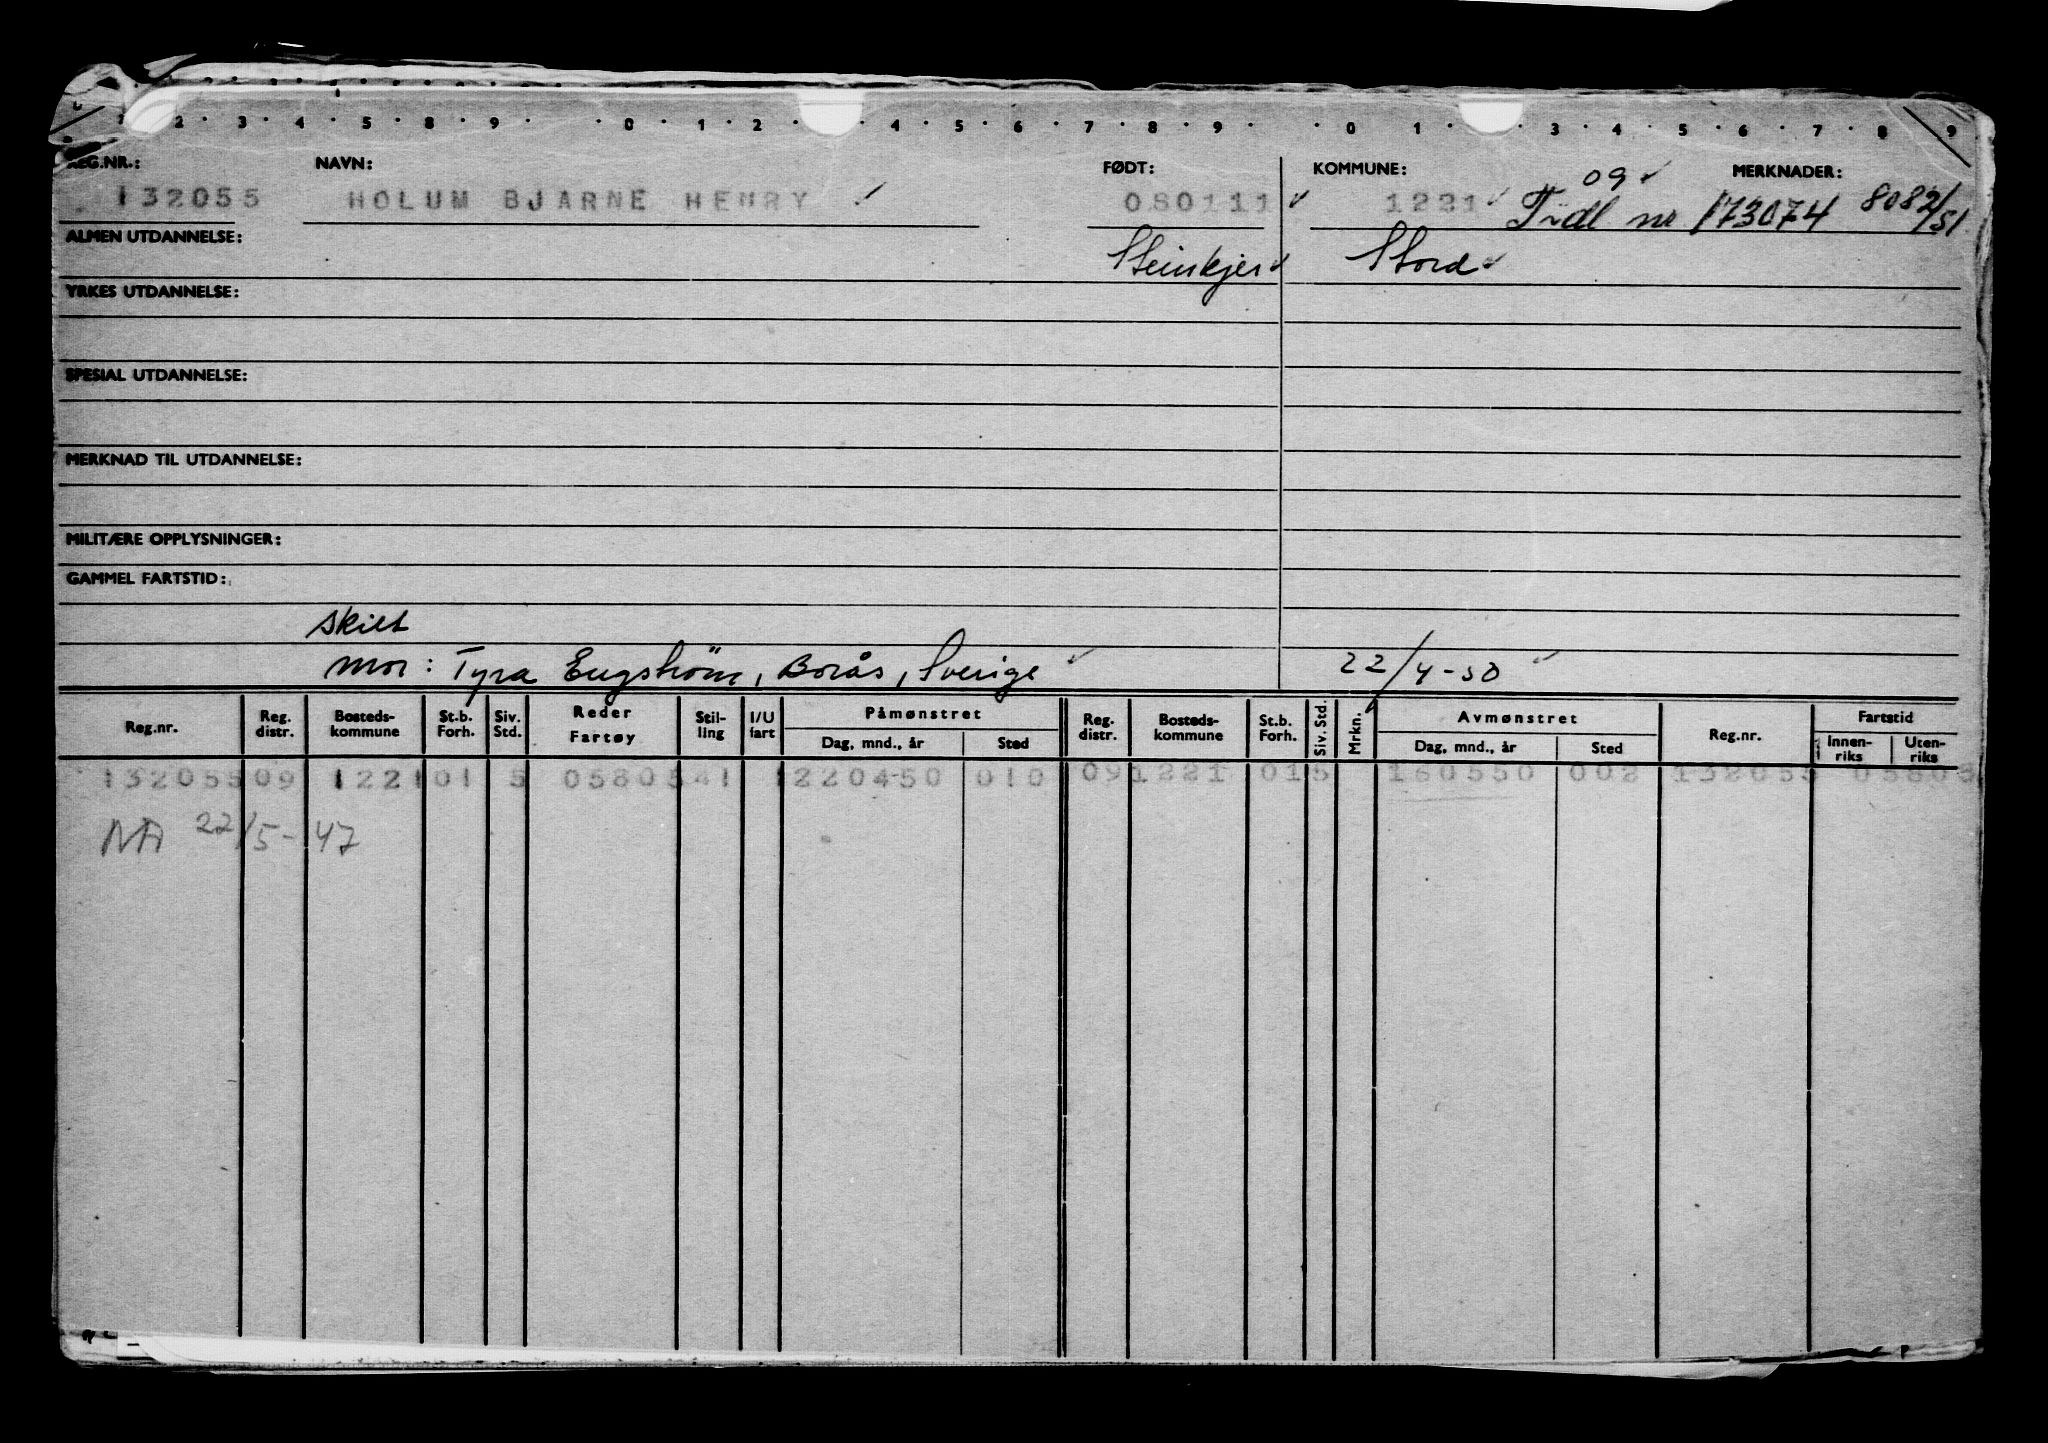 2 . 3 . 4 . 5 . 8 . 9 . . 0 . 1 . 2 . . 4 . 5 . 6 . 7 . 8 . 9 . . 0 . 1 . . 3 . 4 . 5 . 6 . 7 . 8 . 9
REG.NR.: NAVN: FØDT: KOMMUNE: 09 MERKNADER:
132055 HOLUM BJARNE HENRY 080111 1221 Tidl nr 173074 8082/51
ALMEN UTDANNELSE: Steinkjer Stord
YRKES UTDANNELSE:
SPESIAL UTDANNELSE:
MERKNAD TIL UTDANNELSE:
MILITÆRE OPPLYSNINGER:
GAMMEL FARTSTID:
skilt
mor: Tyra Engström, Borås, Sverige 22/4-50
Reg.nr. Reg. distr. Bosteds-kommune St.b. Forh. Siv. Std. Reder Fartøy Stil-ling I/U fart Påmønstret Dag, mnd., år Sted Reg. distr. Bosteds-kommune St.b. Forh. Siv. Std. Mrkn. Avmønstret Dag, mnd., år Sted Reg.nr. Fartstid Innen-riks Uten-riks
132055 09 1221 01 5 05805 41 1 220450 010 09 1221 01 5 160550 002 132055 05805
NA 22/5-47